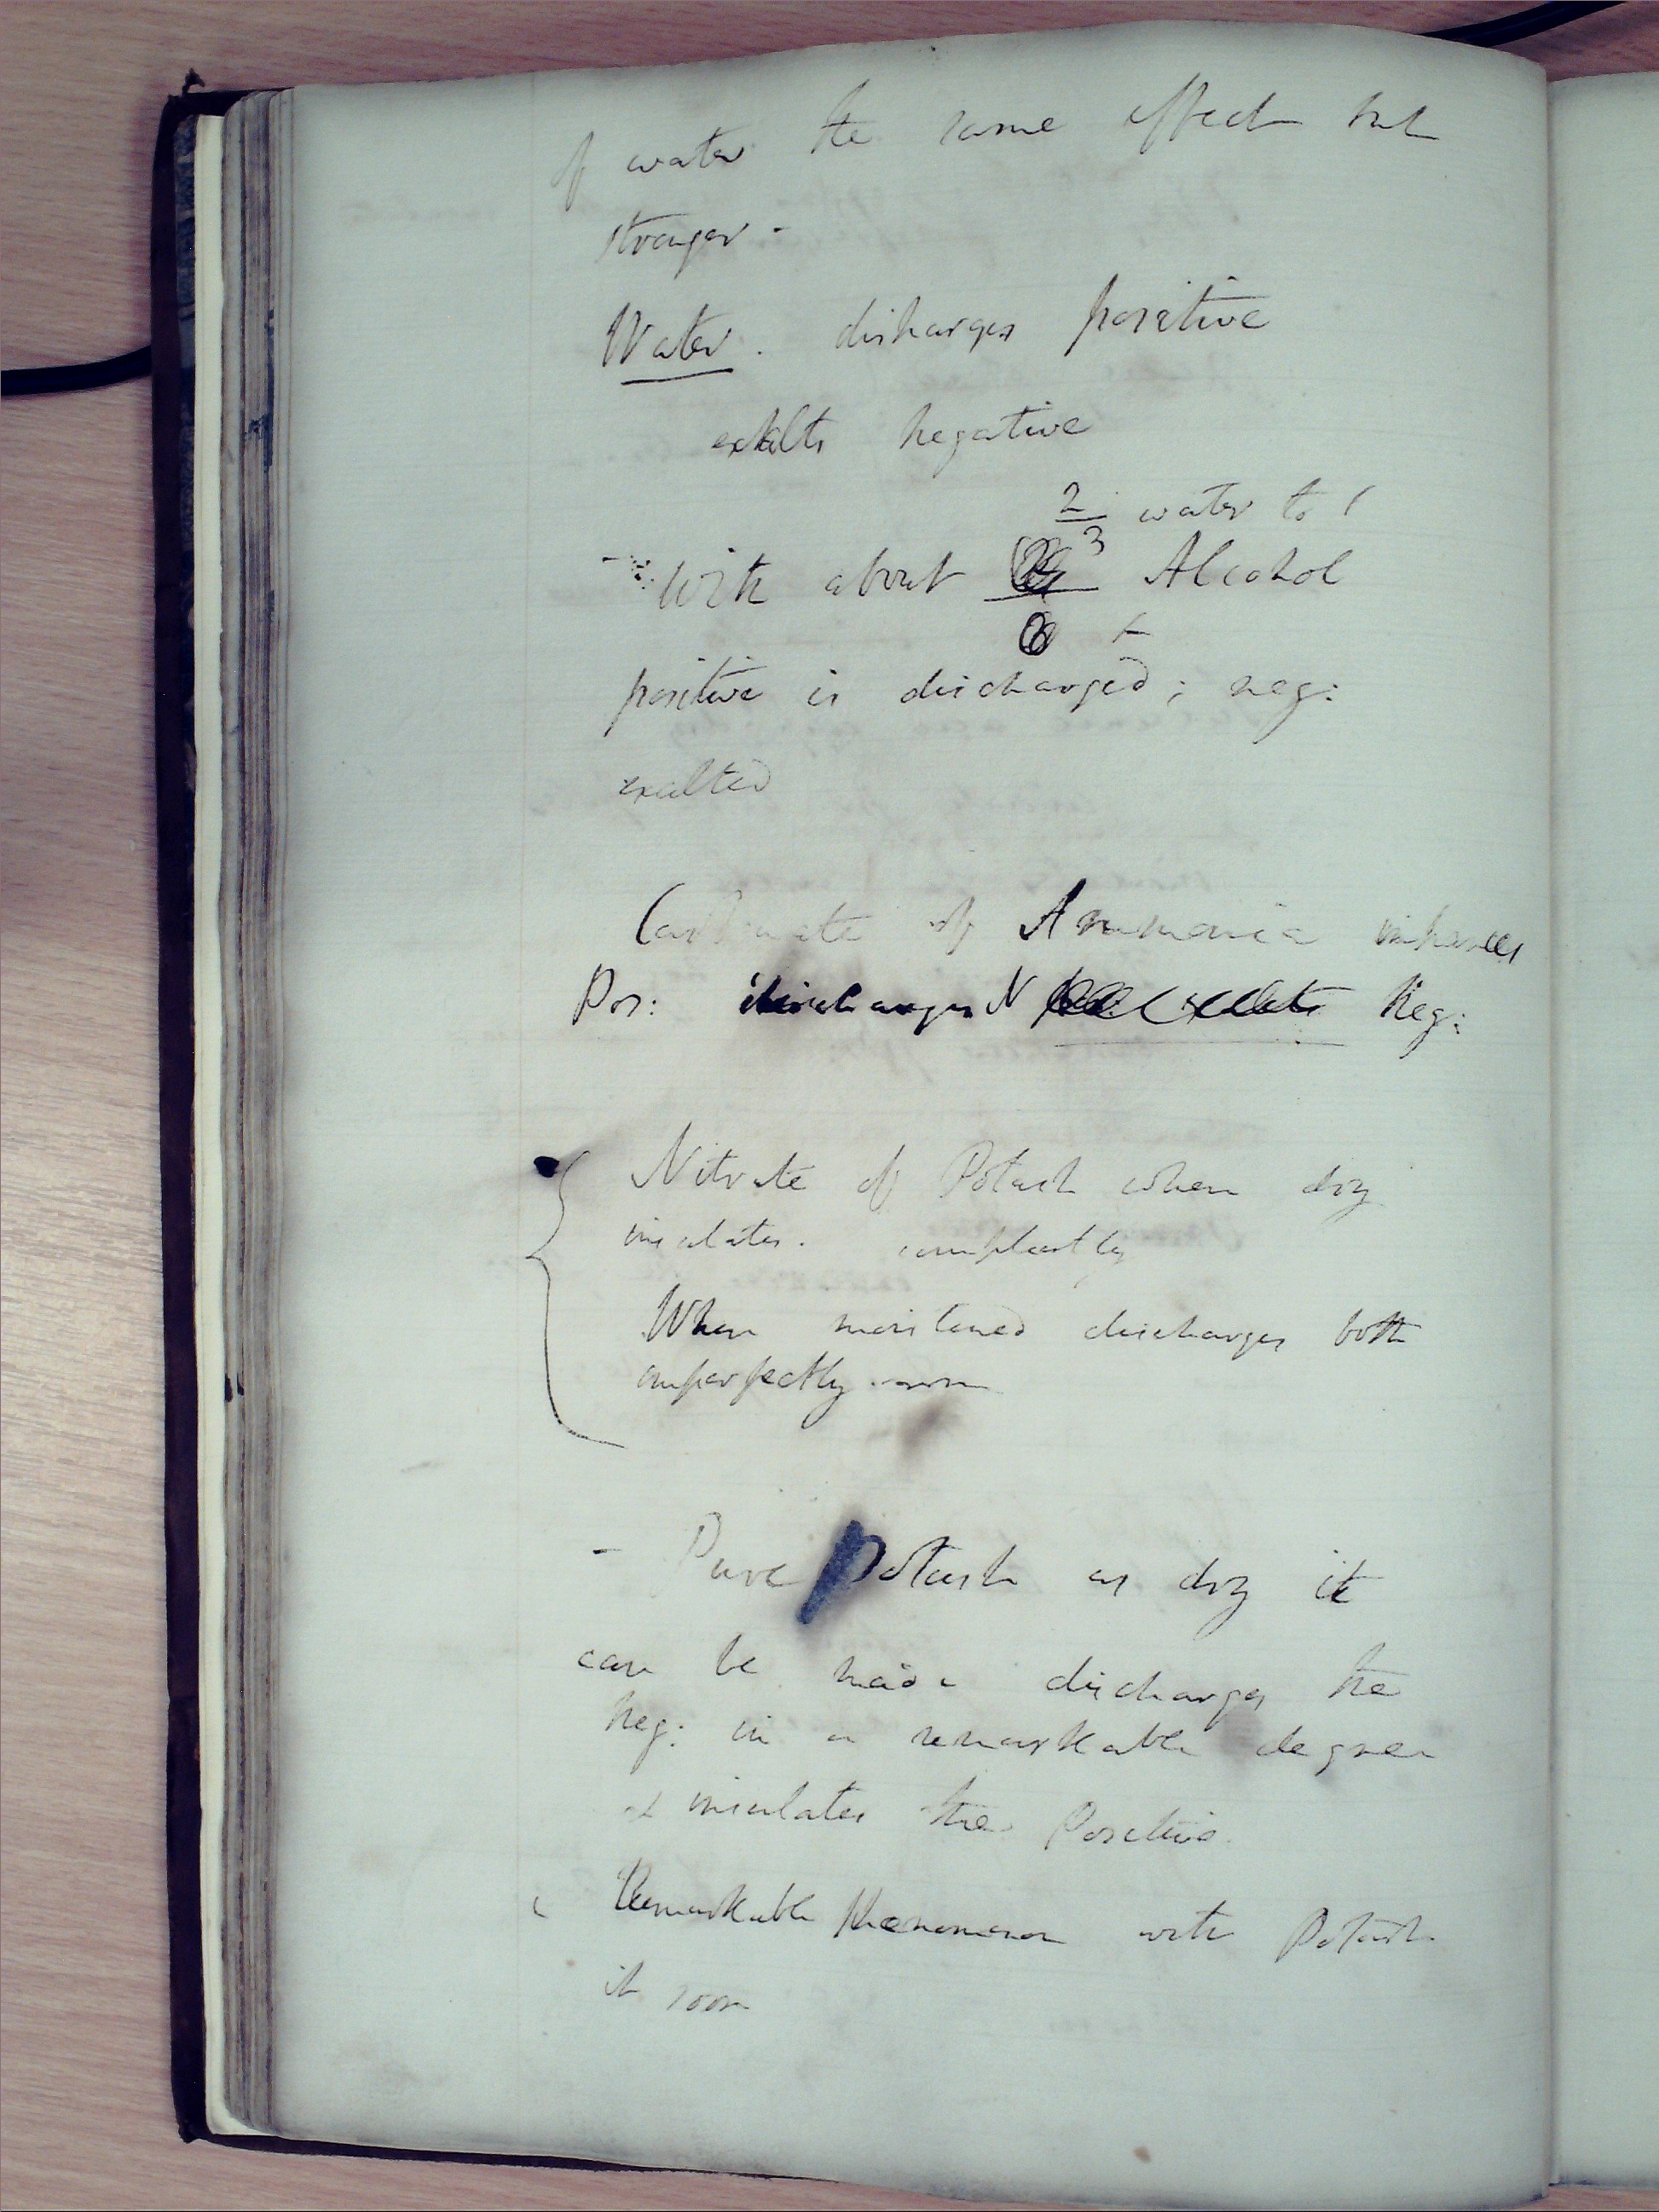 of water the same effect but
stronger -
Water. disharges positive
exalts negative
2/3 water to 1
- With about Alcohol
positive is discharged; neg:
exalted
Carbonate of Ammonia inhances
Pos: discharges N exalts Neg:
Nitrate of Potash when dry
insulates. compleatly
When moistened discharges both
imperfectly.
- Pure Potash as dry it
can be made discharges the
Neg: in a remarkable degree
& insulates the Positive.
Remarkable Phenomenon with Potash
it soon